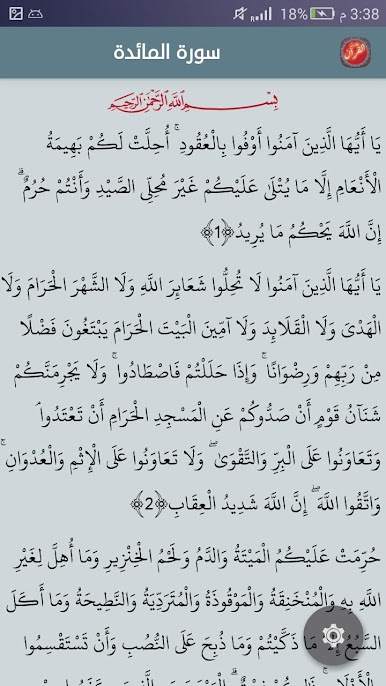 18% 3:38 م
سورة المائدة
بِسْمِ اللَّهِ الرَّحْمَنِ الرَّحِيمِ
يَا أَيُّهَا الَّذِينَ آمَنُوا أَوْفُوا بِالْعُقُودِ ۚ أُحِلَّتْ لَكُمْ بَهِيمَةُ
الْأَنْعَامِ إِلَّا مَا يُتْلَىٰ عَلَيْكُمْ غَيْرَ مُحِلِّي الصَّيْدِ وَأَنْتُمْ حُرُمٌ ۗ
إِنَّ اللَّهَ يَحْكُمُ مَا يُرِيدُ ﴿1﴾
يَا أَيُّهَا الَّذِينَ آمَنُوا لَا تُحِلُّوا شَعَائِرَ اللَّهِ وَلَا الشَّهْرَ الْحَرَامَ وَلَا
الْهَدْيَ وَلَا الْقَلَائِدَ وَلَا آمِّينَ الْبَيْتَ الْحَرَامَ يَبْتَغُونَ فَضْلًا
مِنْ رَبِّهِمْ وَرِضْوَانًا ۚ وَإِذَا حَلَلْتُمْ فَاصْطَادُوا ۚ وَلَا يَجْرِمَنَّكُمْ
شَنَآنُ قَوْمٍ أَنْ صَدُّوكُمْ عَنِ الْمَسْجِدِ الْحَرَامِ أَنْ تَعْتَدُوا ۘ
وَتَعَاوَنُوا عَلَى الْبِرِّ وَالتَّقْوَىٰ ۖ وَلَا تَعَاوَنُوا عَلَى الْإِثْمِ وَالْعُدْوَانِ ۚ
وَاتَّقُوا اللَّهَ ۖ إِنَّ اللَّهَ شَدِيدُ الْعِقَابِ ﴿2﴾
حُرِّمَتْ عَلَيْكُمُ الْمَيْتَةُ وَالدَّمُ وَلَحْمُ الْخِنْزِيرِ وَمَا أُهِلَّ لِغَيْرِ
اللَّهِ بِهِ وَالْمُنْخَنِقَةُ وَالْمَوْقُوذَةُ وَالْمُتَرَدِّيَةُ وَالنَّطِيحَةُ وَمَا أَكَلَ
السَّبُعُ إِلَّا مَا ذَكَّيْتُمْ وَمَا ذُبِحَ عَلَى النُّصُبِ وَأَنْ تَسْتَقْسِمُوا